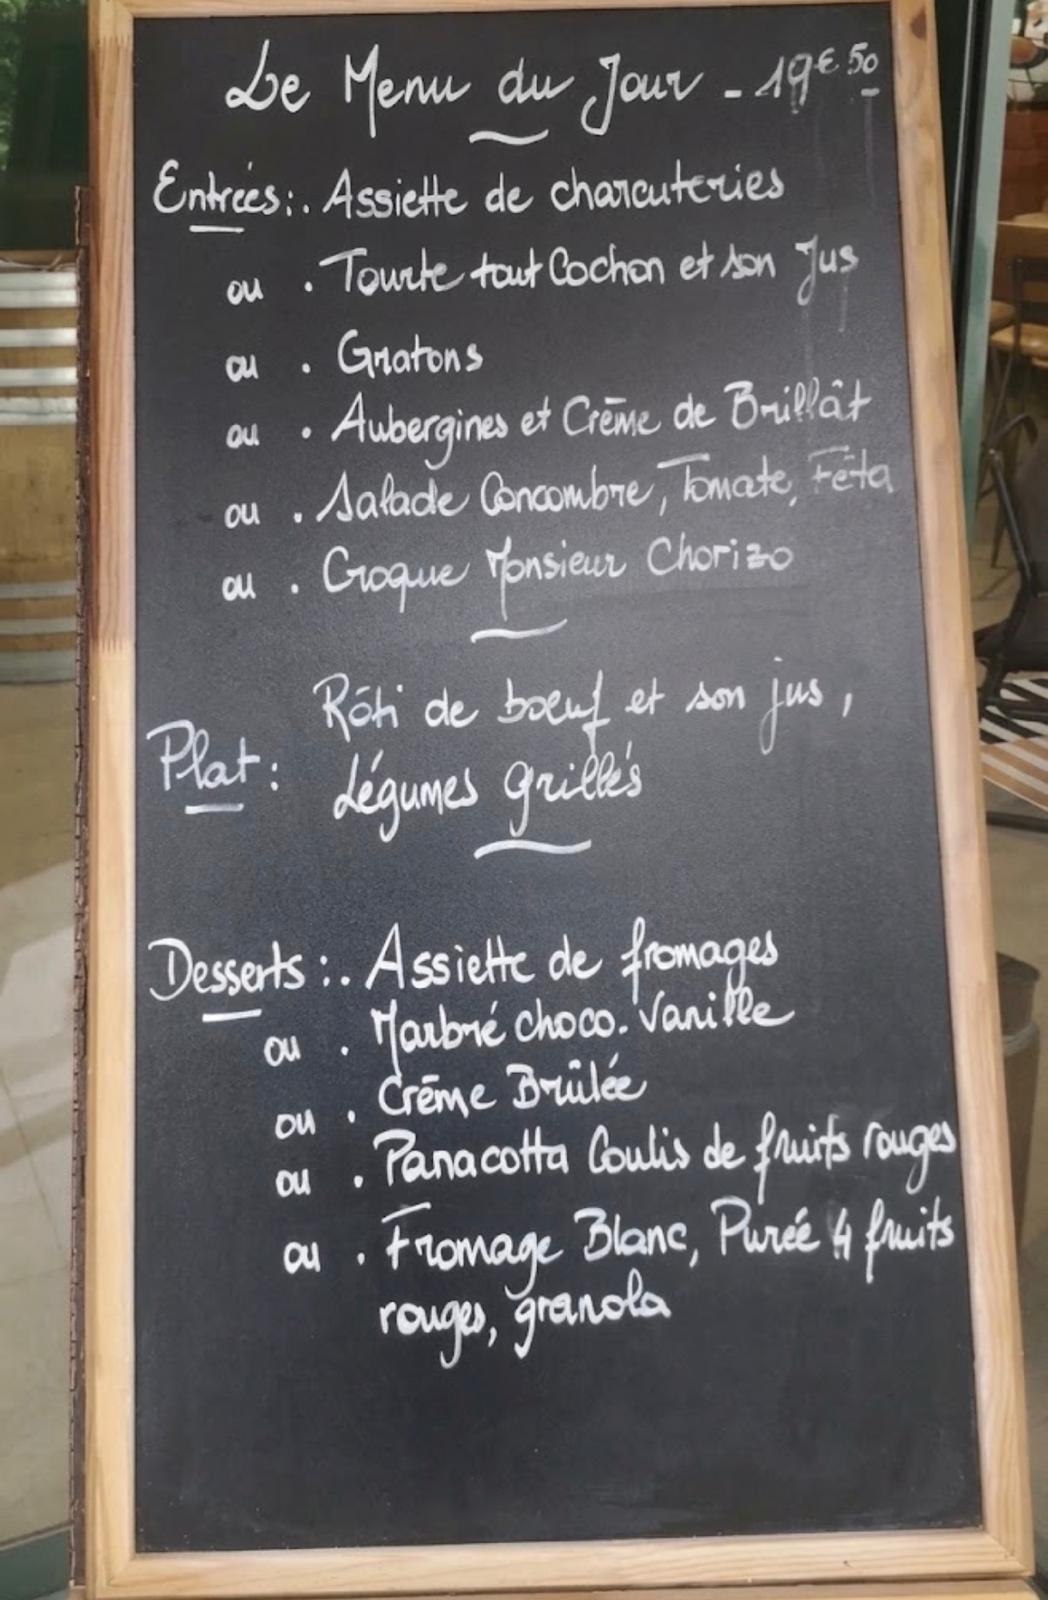 Le Menu du Jour - 19€50
Entrées : . Assiette de charcuteries
ou . Tourte tout Cochon et son Jus
ou . Gratons
ou . Aubergines et Crème de Brillât
ou . Salade Concombre, Tomate, Fêta
ou . Croque Monsieur Chorizo
Rôti de boeuf et son jus,
Plat : Légumes grillés
Desserts : . Assiette de fromages
ou . Marbré choco. Vanille
ou . Crème Brûlée
ou . Panacotta Coulis de fruits rouges
ou . Fromage Blanc, Purée 4 fruits
rouges, granola